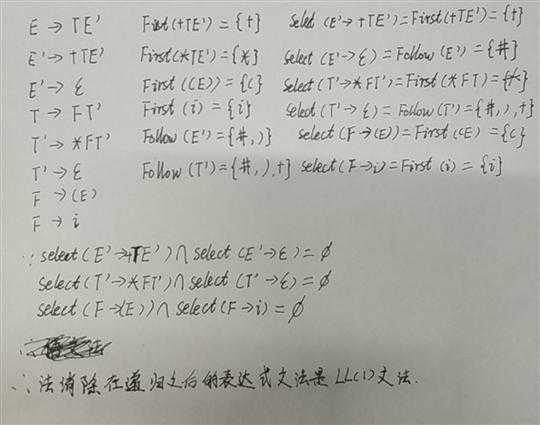 E → TE' First(+TE')={+} Select(E'→+TE')=First(+TE')={+}
E'→+TE' First(*TE')={*} Select(E'→ε)=Follow(E')={#}
E'→ε First((E))={(} Select(T'→*FT')=First(*FT)={*}
T → FT' First(i)={i} Select(T'→ε)=Follow(T')={#,),+}
T'→*FT' Follow(E')={#,)} select(F→(E))=First(E)={(}
T'→ε Follow(T')={#,),+} select(F→i)=First(i)={i}
F → (E)
F → i
∵select(E'→+TE')∩select(E'→ε)=∅
select(T'→*FT')∩select(T'→ε)=∅
select(F→(E))∩select(F→i)=∅
∴法消除在递归之后的表达式文法是LL(1)文法.